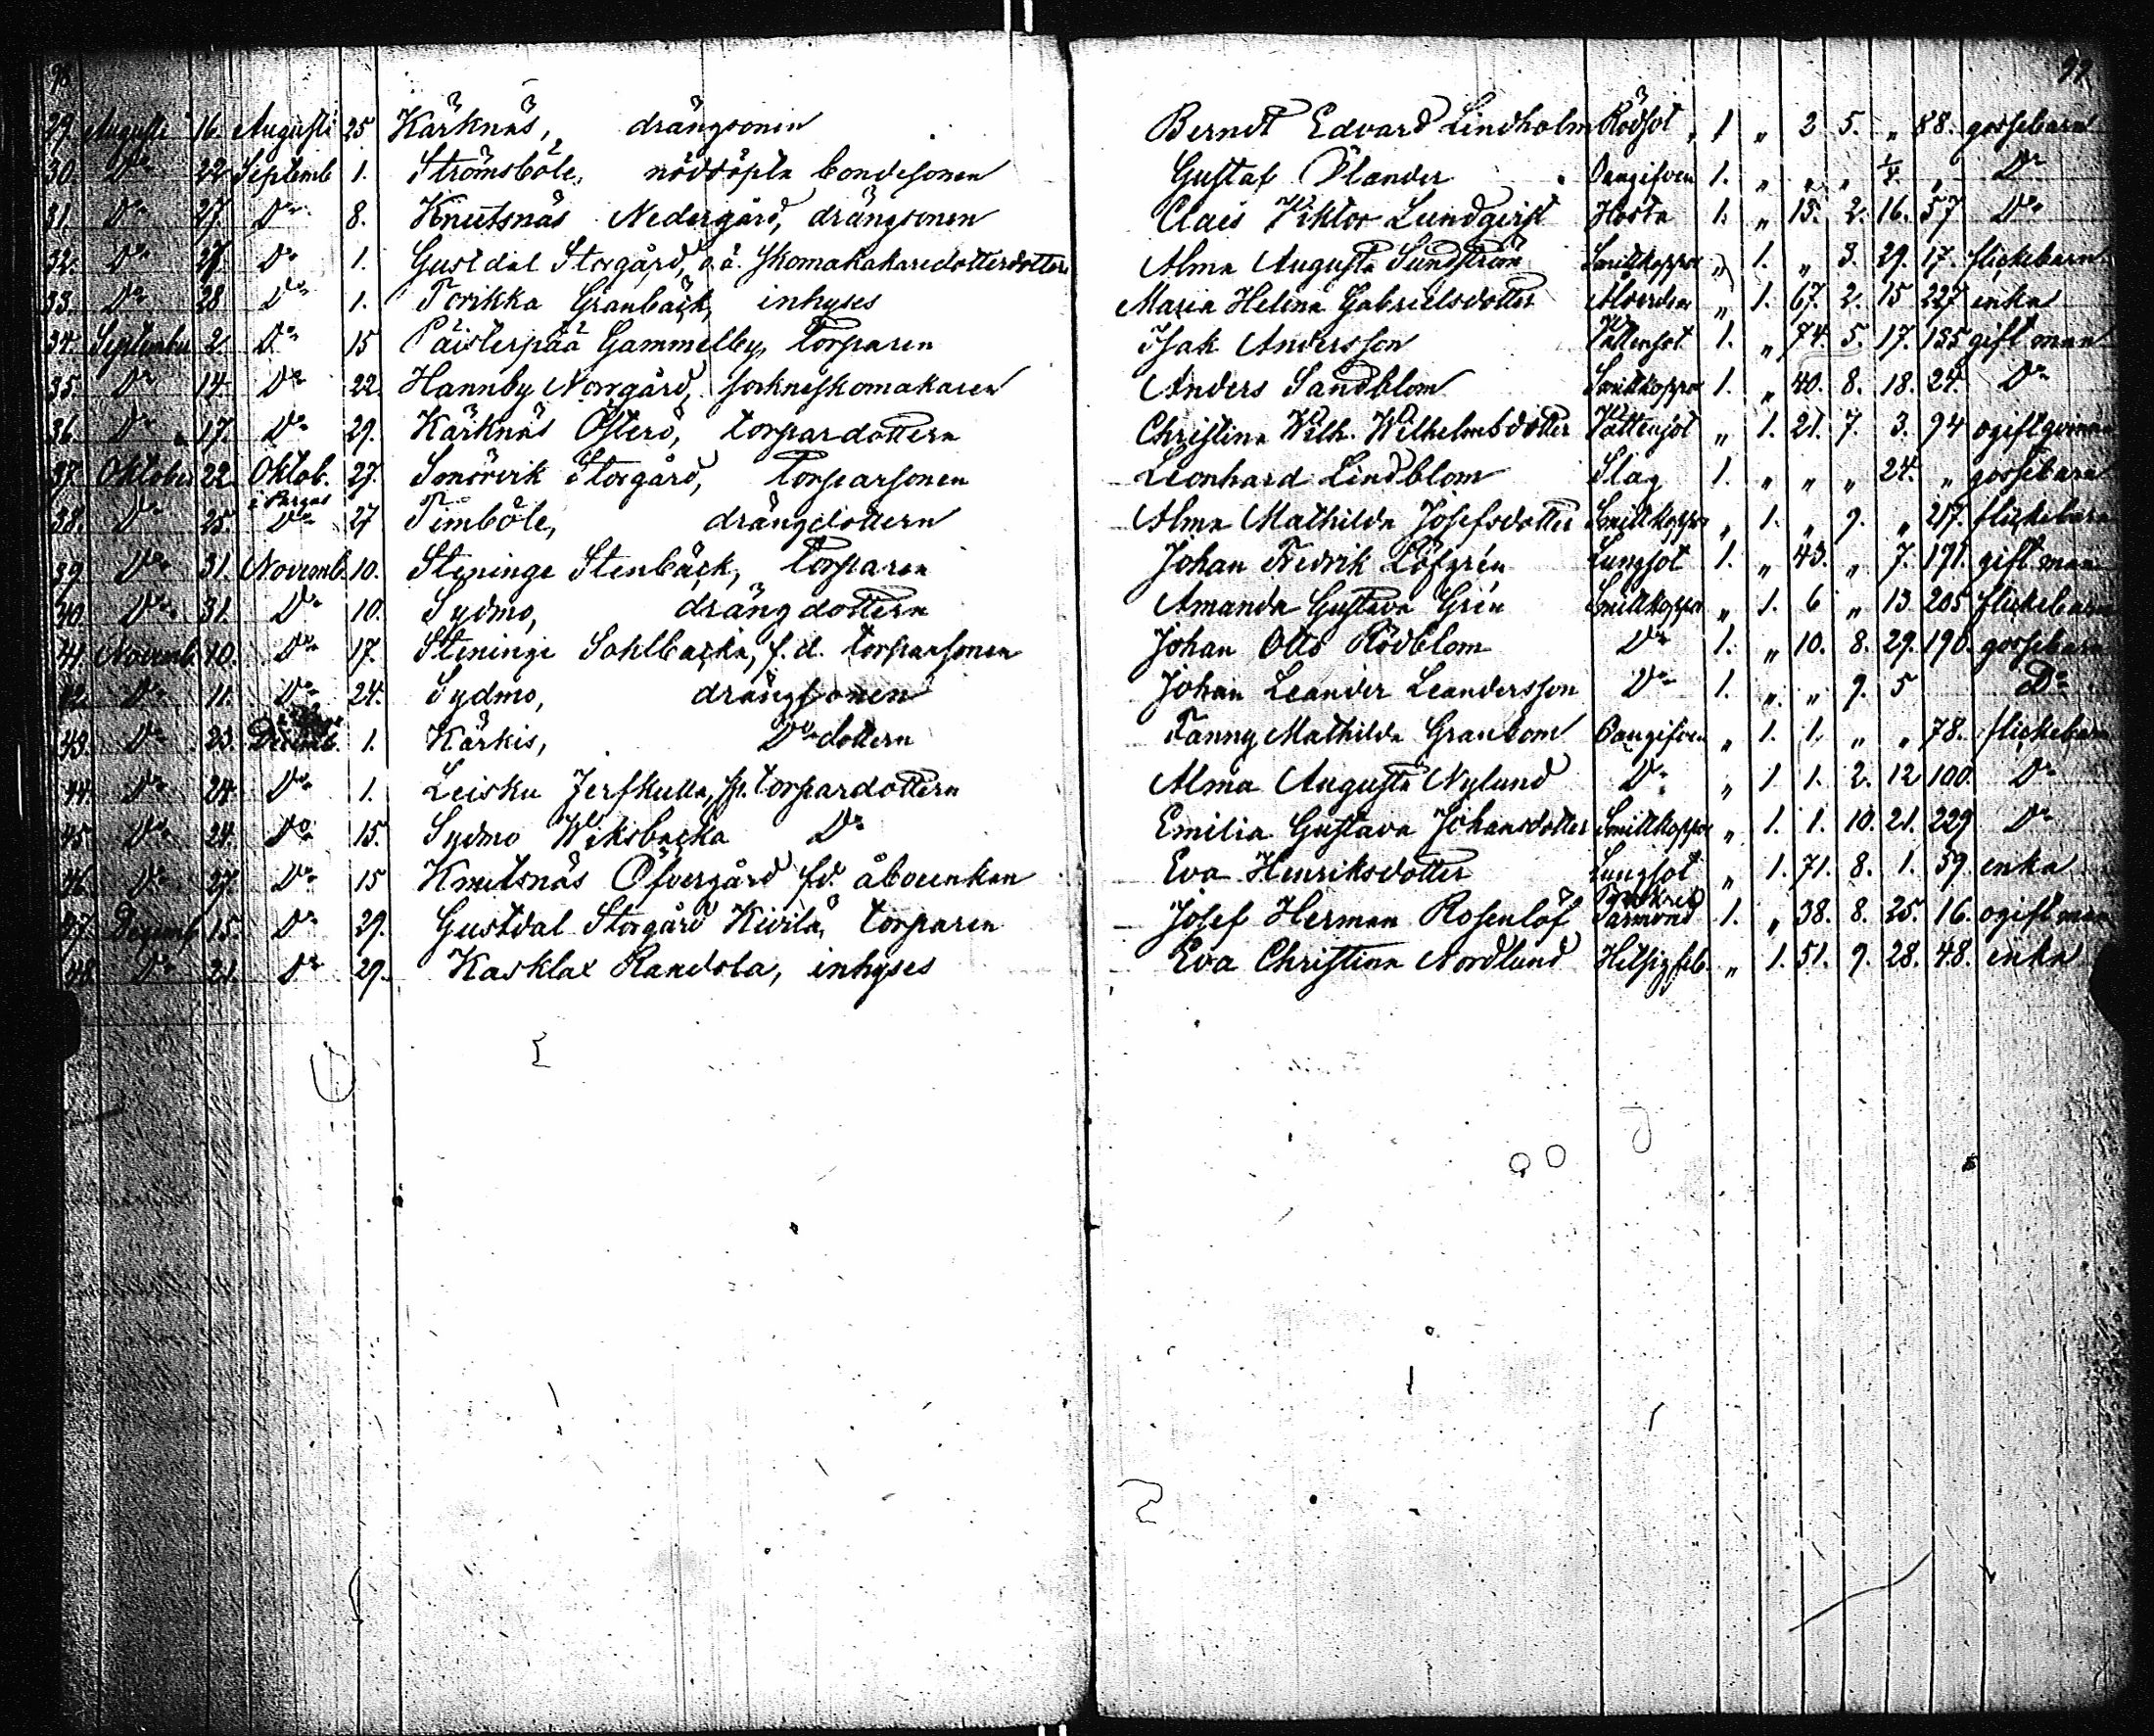 98 99
29. Augusti 16. Augusti 25 Kärknäs, drängsonen Berndt Edvard Lindholm Rödsot 1 „ 2 5. „ 88. gossebarn
30. Do 22 Septemb 1. Strömsböle, nöddöpta bondesonen Gustaf Ölander Oangifven 1. „ „ „ 1/4. „ Do
31. Do 27. Do 8. Knutsnäs Nedergård, drängsonen Claes Viktor Lundqvist Hosta 1. „ 15. 2. 16. 57 Do
32. Do 27. Do 1. Gustdal Storgård, o.ä. skomakaredotterdottern Alma Augusta Sundström Smittkoppor „ 1. „ 3. 29. 17. flickebarn
33. Do 28 Do 1. Torikka Granbäck, inhyses Maria Helena Gabrielsdotter Ålderdom „ 1. 67. 2. 15 227 enka
34. September 2. Do 15 Päisterpää Gammelby, torparen Isak Andersson Vattusot 1. „ 74. 5. 17. 135 gift man
35. Do 14. Do 22. Hannby Norrgård, sockneskomakaren Anders Sandblom Smittkoppor 1. „ 40. 8. 18. 24. Do
36. Do 17. Do 29. Kärknäs Österö, torpardottern Christina Wilh. Wilhelmsdotter Vattusot „ 1. 21. 7. 3. 94 ogift qvinna
37. Oktober 22. Oktob. 27. Sonörvik Storgård, torparsonen Leonhard Lindblom Slag 1. „ „ „ 24. „ gossebarn
i Pargas
38. Do 25. Do 27 Timböle, drängdottern Alma Mathilda Josefsdotter Smittkoppor „ 1. „ 9. „ 217. flickebarn
39. Do 31. Novemb. 10. Steninge Stenbäck, torparen Johan Fredrik Löfgrén Lungsot 1. „ 43. „ 7. 171. gift man
40. Do 31. Do 10. Sydmo, drängdottern Amanda Gustava Grén Smittkoppor „ 1. 6 „ 13 205 flickebarn
41. Novemb. 10. Do 17. Steninge Sahlbacka, f.d. torparsonen Johan Otto Rödblom Do 1. „ 10. 8. 29. 190. gossebarn
42. Do 11. Do 24. Sydmo, drängsonen Johan Leander Leandersson Do 1. „ „ 9. 5 Do
43. Do 23. Decemb. 1. Kärkis, Do dottern Fanny Mathilda Granbom Oangifven „ 1. 1. „ „ 78. flickebarn
44. Do 24. Do 1. Leisku Jerfkulla, torpardottern Alma Augusta Nylund Do „ 1 1. 2. 12 100. Do
45. Do 24. Do 15. Sydmo Wiksbacka Do Emilia Gustava Johansdotter Smittkoppor „ 1. 1. 10. 21. 229 Do
46. Do 27. Do 15 Knutsnäs Öfvergård f.d. åboenkan Eva Henriksdotter Lungsot „ 1. 71. 8. 1. 59. enka
47. Decemb. 15. Do 29. Gustdal Storgård Kivilä, torparen Josef Herman Rosenlöf 1. „ 38. 8. 25. 16. ogift man
48. Do 21. Do 29. Kasklax Randsta, inhyses Eva Christina Nordlund Hitsigfeb. „ 1. 51. 9. 28. 48. enka